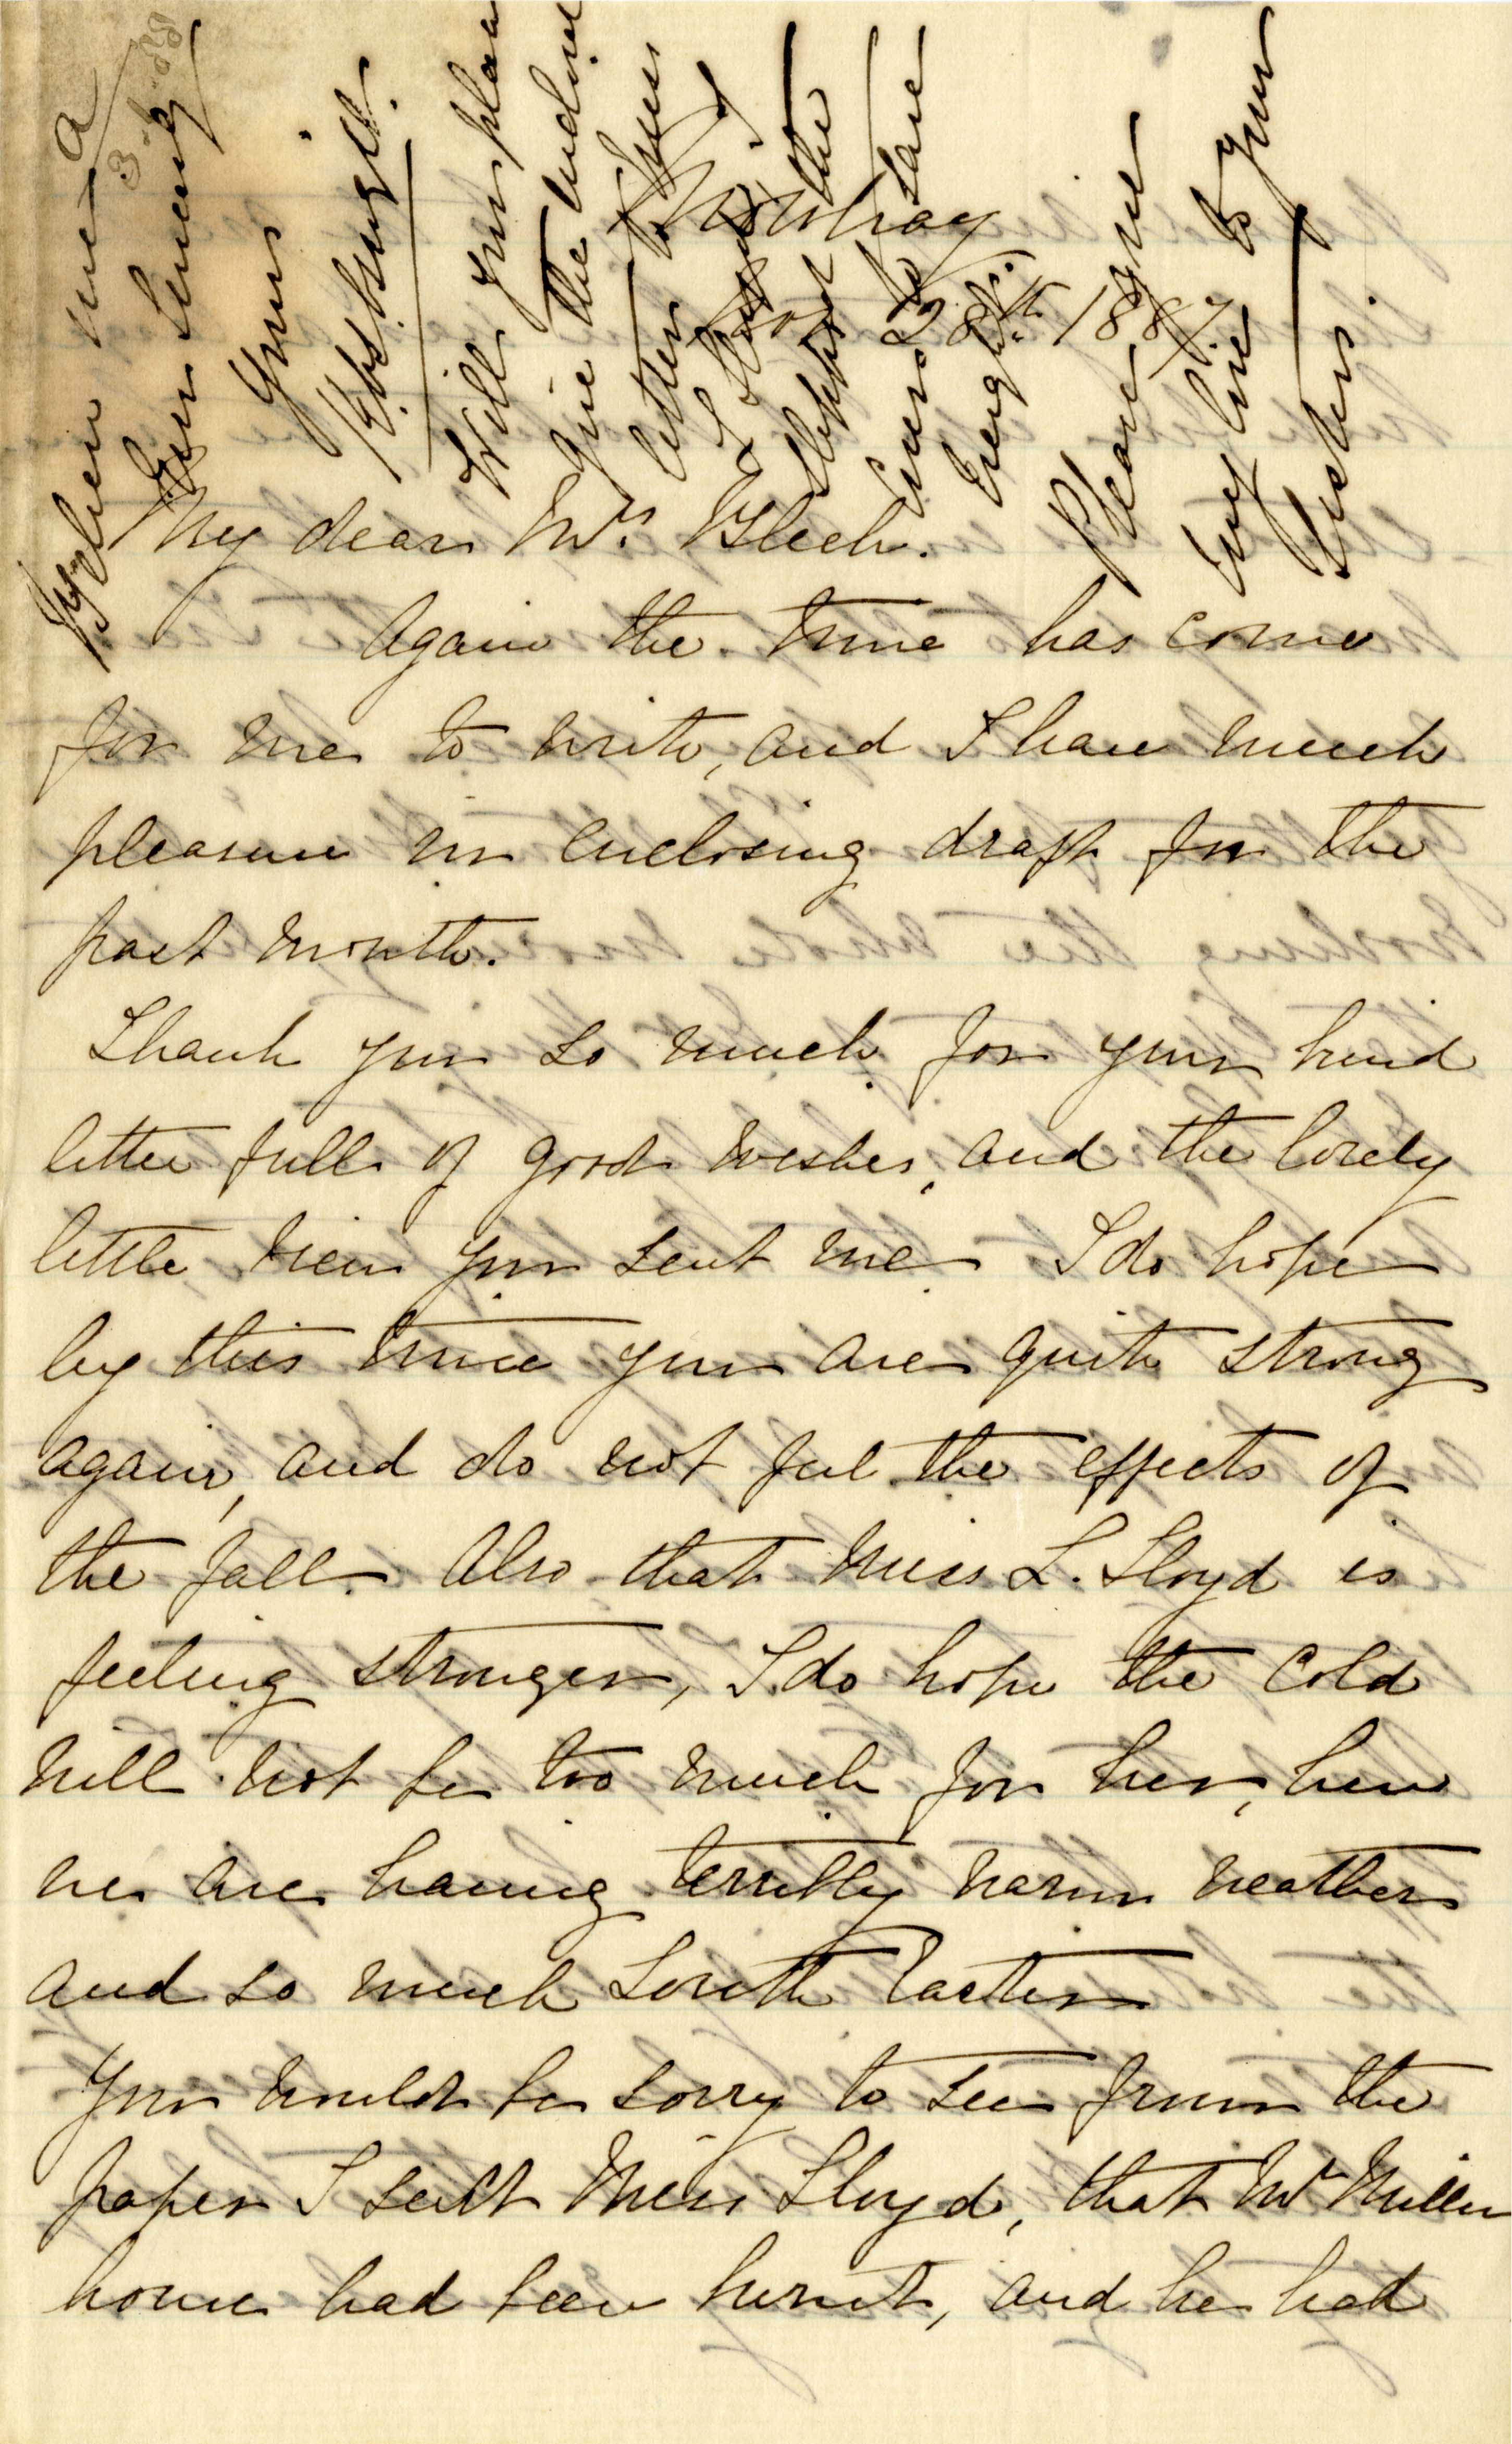 Mowbray
Nov 28th 1887.
My dear Mrs Bleek.
Again the time has come
for me to write, and I have much
pleasure in enclosing draft for the
past month.
Thank you so much for your kind
letter full of good wishes, and the lovely
little view you sent me. I do hope
by this time you are quite strong
again, and do not feel the effects of
the fall. Also that Miss L. Lloyd is
feeling stronger, I do hope the cold
will not be too much for her, here
we are having terribly warm weather
and so much South Easter
You would be sorry to see from the
paper I sent Miss Lloyd, that Mr Miller
house had been burnt, and he had
Believe me
yours sincerely
Will you please
give the enclosed
letter to
I
England
Please give
my love to your
sisters.